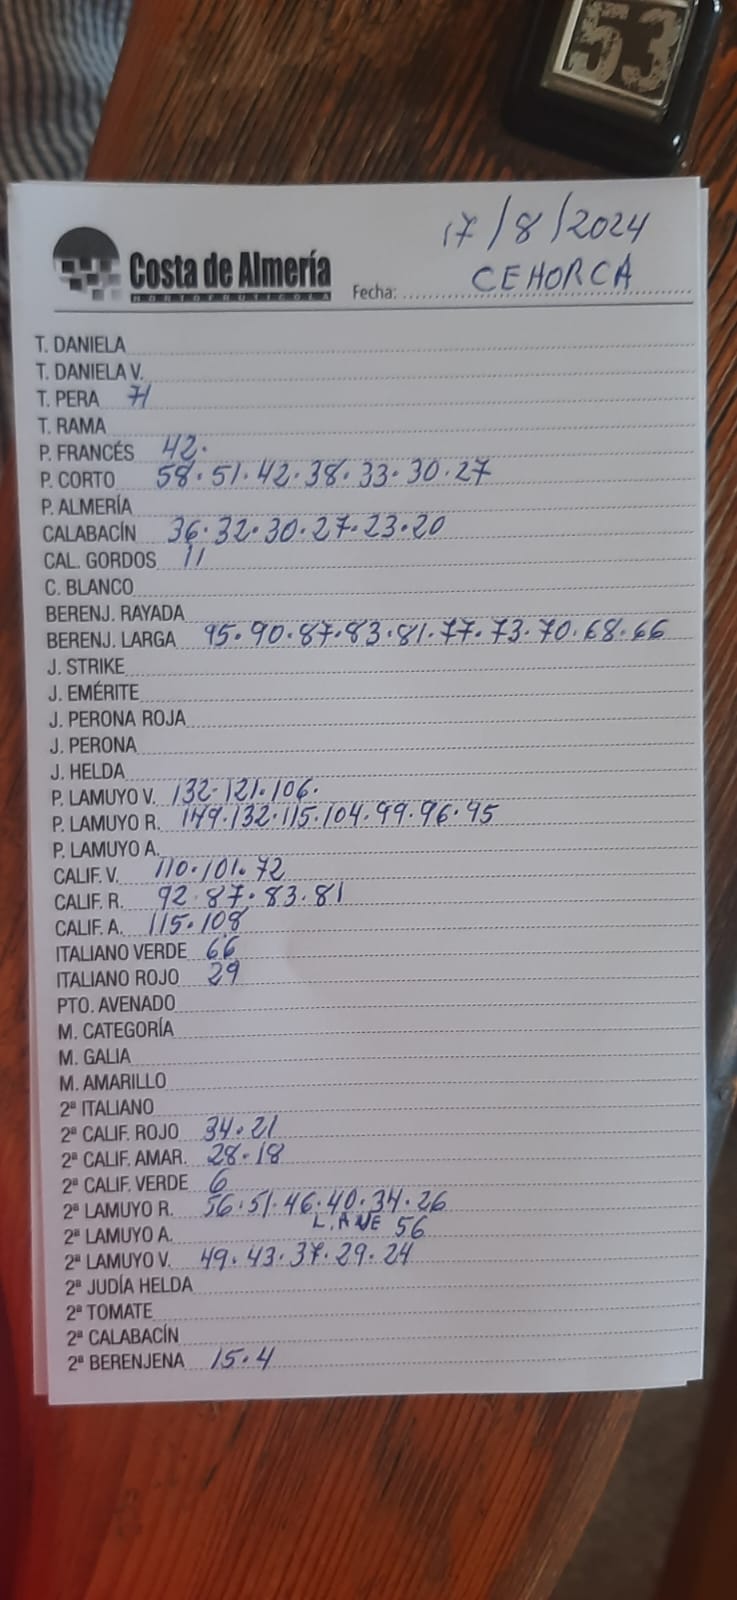 53
17/8/2024
Costa de Almería
HORTOFRUTICOLA
Fecha: CEHORCA
T. DANIELA
T. DANIELA V.
T. PERA 71
T. RAMA
P. FRANCÉS 42.
P. CORTO 58.51.42.38.33.30.27
P. ALMERÍA
CALABACÍN 36.32.30.27.23.20
CAL. GORDOS 11
C. BLANCO
BERENJ. RAYADA
BERENJ. LARGA 95.90.87.83.81.77.73.70.68.66
J. STRIKE
J. EMÉRITE
J. PERONA ROJA
J. PERONA
J. HELDA
P. LAMUYO V. 132.121.106.
P. LAMUYO R. 149.132.115.104.99.96.95
P. LAMUYO A.
CALIF. V. 110.101.72
CALIF. R. 92.87.83.81
CALIF. A. 115.108
ITALIANO VERDE 66
ITALIANO ROJO 29
PTO. AVENADO
M. CATEGORÍA
M. GALIA
M. AMARILLO
2ª ITALIANO
2ª CALIF. ROJO 34.21
2ª CALIF. AMAR. 28.18
2ª CALIF. VERDE 6
2ª LAMUYO R. 56.51.46.40.34.26
2ª LAMUYO A. L. AVE 56
2ª LAMUYO V. 49.43.37.29.24
2ª JUDÍA HELDA
2ª TOMATE
2ª CALABACÍN
2ª BERENJENA 15.4